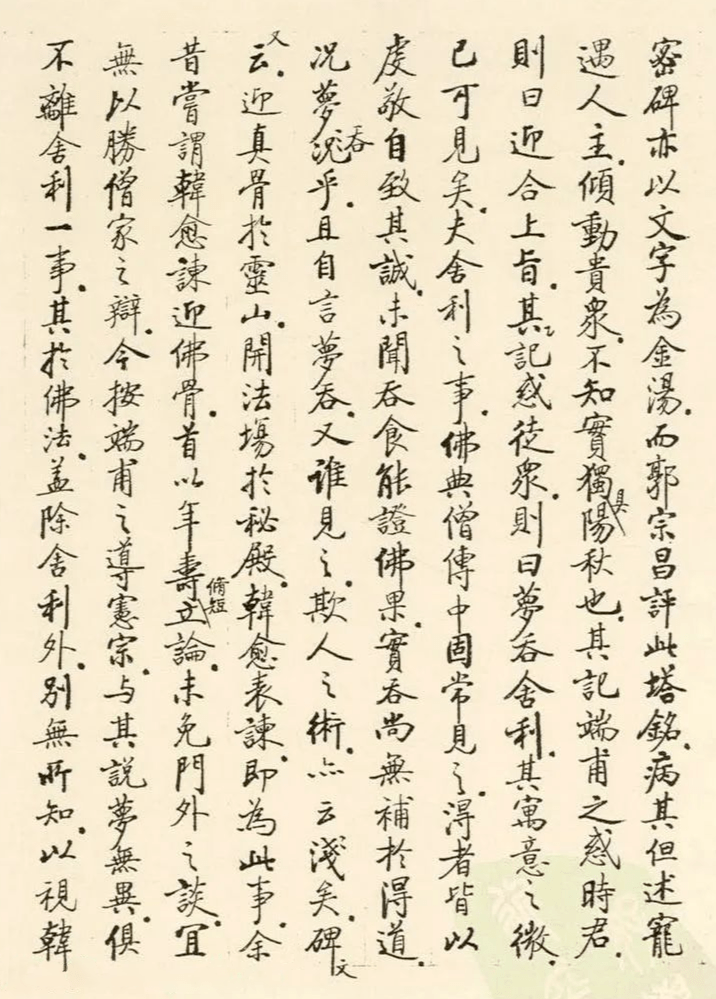 密碑亦以文字為金湯而郭宗昌評此塔銘病其但述寵
遇人主傾動貴衆不知實獨具陽秋也其記端甫之惑時君
則曰迎合上旨其記惑徒衆則曰夢吞舍利其寓意之微
已可見矣夫舍利之事佛典僧傳中固常見之淂者皆以
虔敬自致其誠未聞吞食能證佛果實吞尚無補於淂道
况夢吞乎且自言夢吞又誰見之欺人之術亦云淺矣碑文
又云迎真骨於靈山開法場於秘殿韓愈表諫即為此事余
昔嘗謂韓愈諫迎佛骨首以年壽脩短立論未免門外之談宜
無以勝僧家之辯今按端甫之導憲宗与其說夢無異俱
不離舍利一事其於佛法蓋除舍利外别無所知以視韓